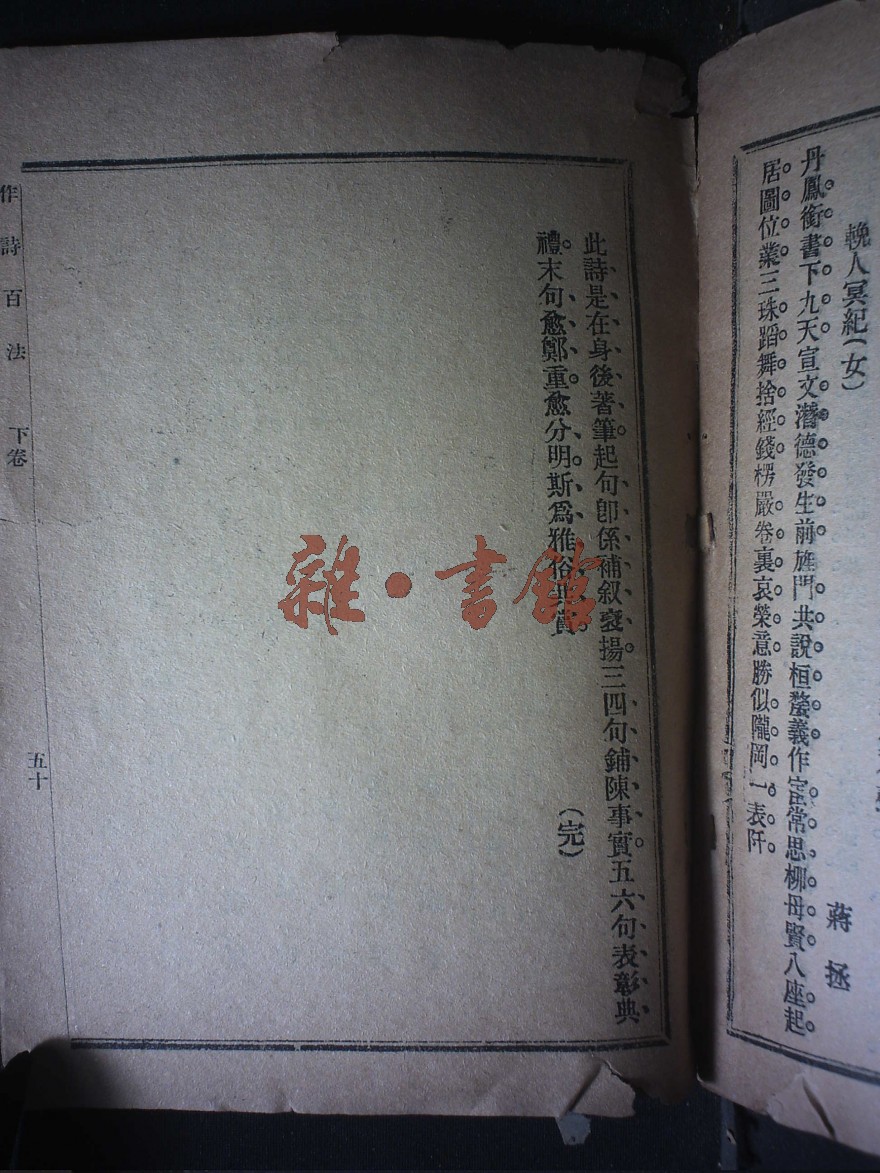 輓人冥紀(女)
蔣拯
丹鳳銜書下九天宣文潛德發生前旌門共說桓嫠義作宦常思柳母賢八座起
居圖位業三珠蹈舞捨經錢楞嚴卷裏哀榮意勝似隴岡一表阡
此詩是在身後著筆起句卽係補叙褒揚三四句鋪陳事實五六句表彰典
禮末句愈鄭重愈分明斯爲雅俗共賞
(完)
作詩百法 下卷
五十
雜·書館